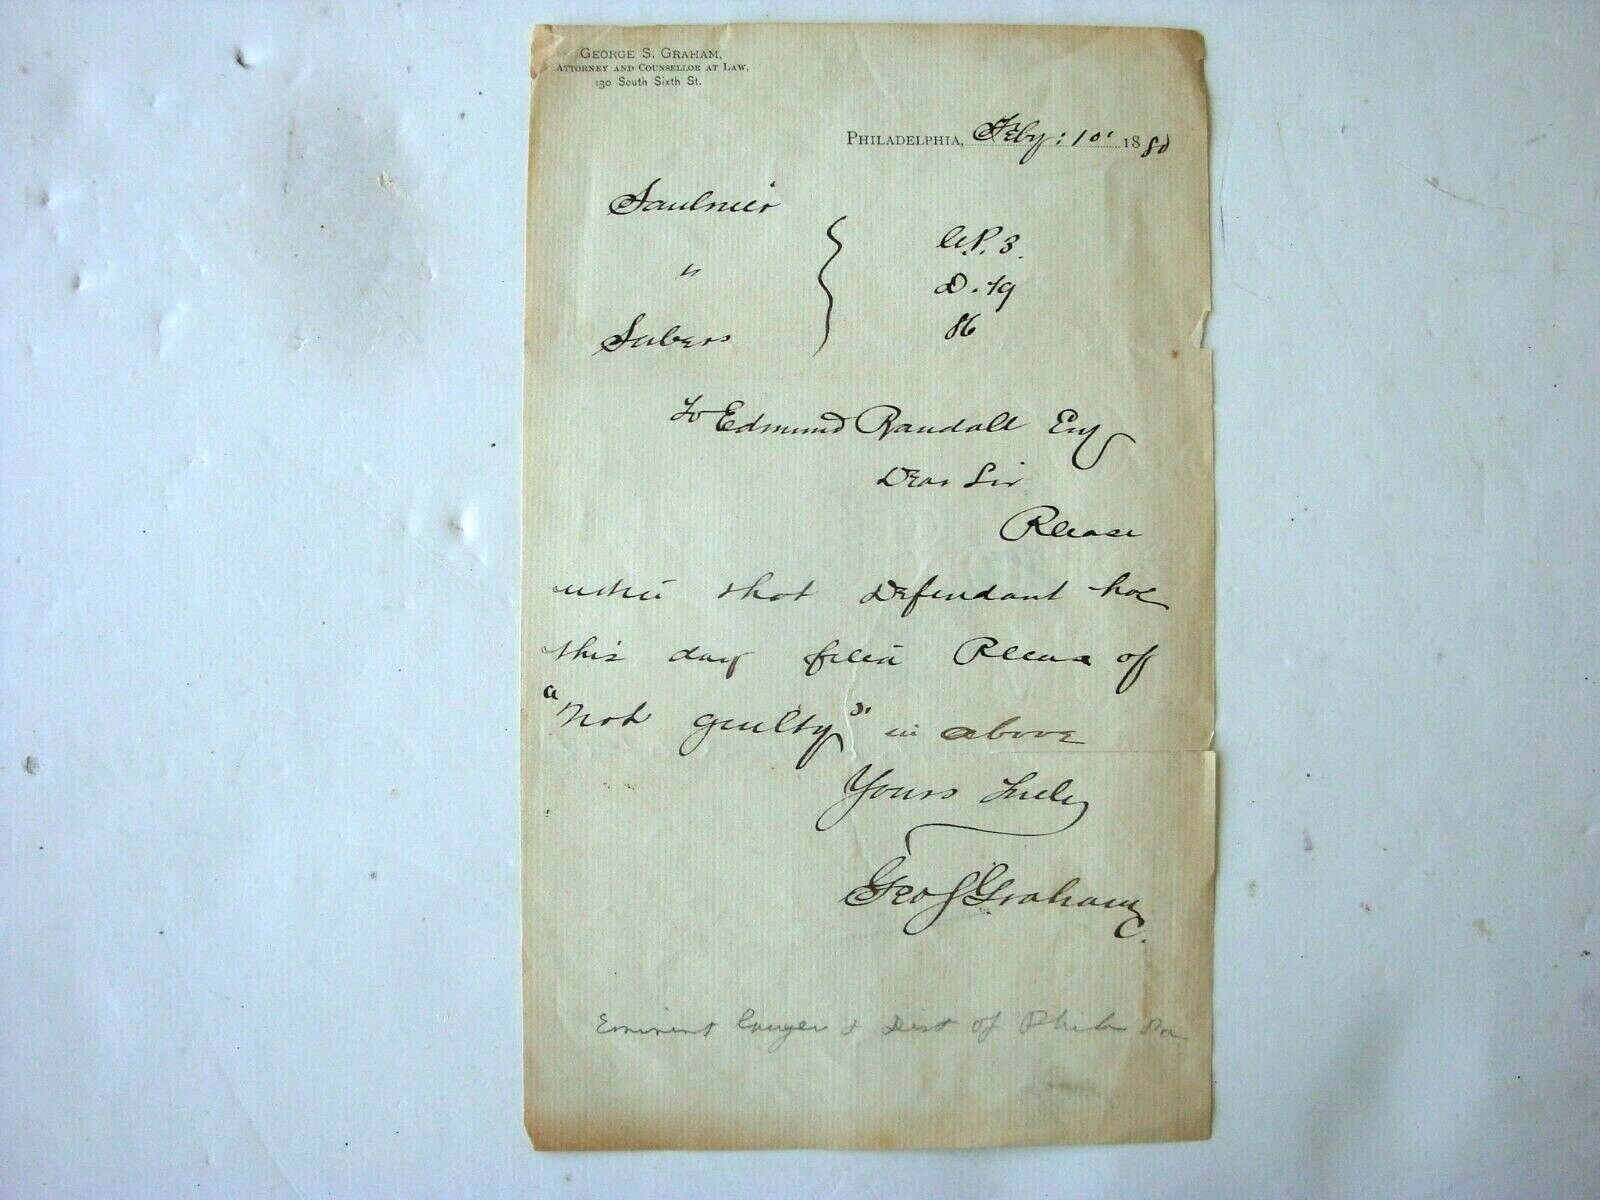 GEORGE S. GRAHAM,
ATTORNEY AND COUNSELLOR AT LAW,
130 South Sixth St.
PHILADELPHIA, Feby: 10' 1880
Saulnier
"
Subers
C.P. 3.
D. 79
86
To Edmund Randall Esq
Dear Sir
Please
notice that Defendant has
this day filed Pleas of
"Not guilty" in above
Yours Truly
Geo S Graham
C.
Eminent lawyer & Dist of Phila Pa